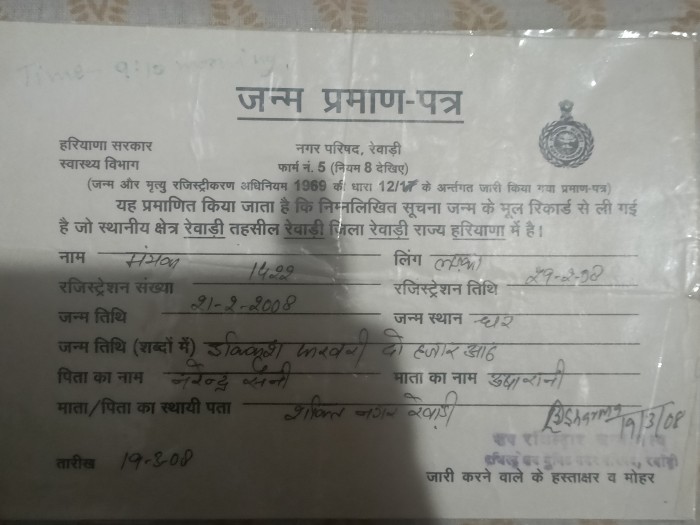 Time- 9:10 morning.
जन्म प्रमाण-पत्र
हरियाणा सरकार
स्वास्थ्य विभाग
नगर परिषद, रेवाड़ी
फार्म नं. 5 (नियम 8 देखिए)
(जन्म और मृत्यु रजिस्ट्रीकरण अधिनियम 1969 की धारा 12/17 के अर्न्तगत जारी किया गया प्रमाण-पत्र)
यह प्रमाणित किया जाता है कि निम्नलिखित सूचना जन्म के मूल रिकार्ड से ली गई
है जो स्थानीय क्षेत्र रेवाड़ी तहसील रेवाड़ी जिला रेवाड़ी राज्य हरियाणा में है।
नाम लिंग लड़का
रजिस्ट्रेशन संख्या 1422 रजिस्ट्रेशन तिथि 29-2-08
जन्म तिथि 21-2-2008 जन्म स्थान घर
जन्म तिथि (शब्दों में) इक्कीस फरवरी दो हजार आठ
पिता का नाम नरेन्द्र सैनी माता का नाम उषा रानी
माता/पिता का स्थायी पता शक्ति नगर रेवाड़ी
19/3/08
तारीख 19-3-08
जारी करने वाले के हस्ताक्षर व मोहर